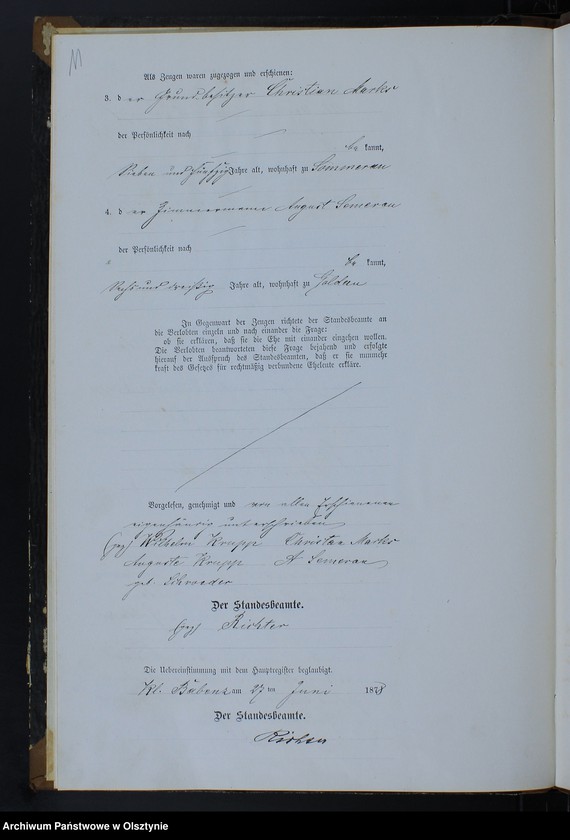 Als Zeugen waren zugezogen und erschienen:
3. der Grundbesitzer Christian Marks
der Persönlichkeit nach
be kannt,
Sieben und fünfzig Jahre alt, wohnhaft zu Sommerau
4. der Zimmermann August Semerau
der Persönlichkeit nach
be kannt,
Sechs und dreißig Jahre alt, wohnhaft zu Goldau
In Gegenwart der Zeugen richtete der Standesbeamte an
die Verlobten einzeln und nach einander die Frage:
ob sie erklären, daß sie die Ehe mit einander eingehen wollen.
Die Verlobten beantworteten diese Frage bejahend und erfolgte
hierauf der Ausspruch des Standesbeamten, daß er sie nunmehr
kraft des Gesetzes für rechtmäßig verbundene Eheleute erkläre.
Vorgelesen, genehmigt und von allen Erschienenen
eigenhändig unterschrieben
(gez) Wilhelm Krupp Christian Marks
Auguste Krupp A Semerau
geb. Schroeder
Der Standesbeamte.
(gez) Richter
Die Uebereinstimmung mit dem Hauptregister beglaubigt.
Kl. Babenz am 27 ten Juni 1878
Der Standesbeamte.
Richter
Archiwum Państwowe w Olsztynie